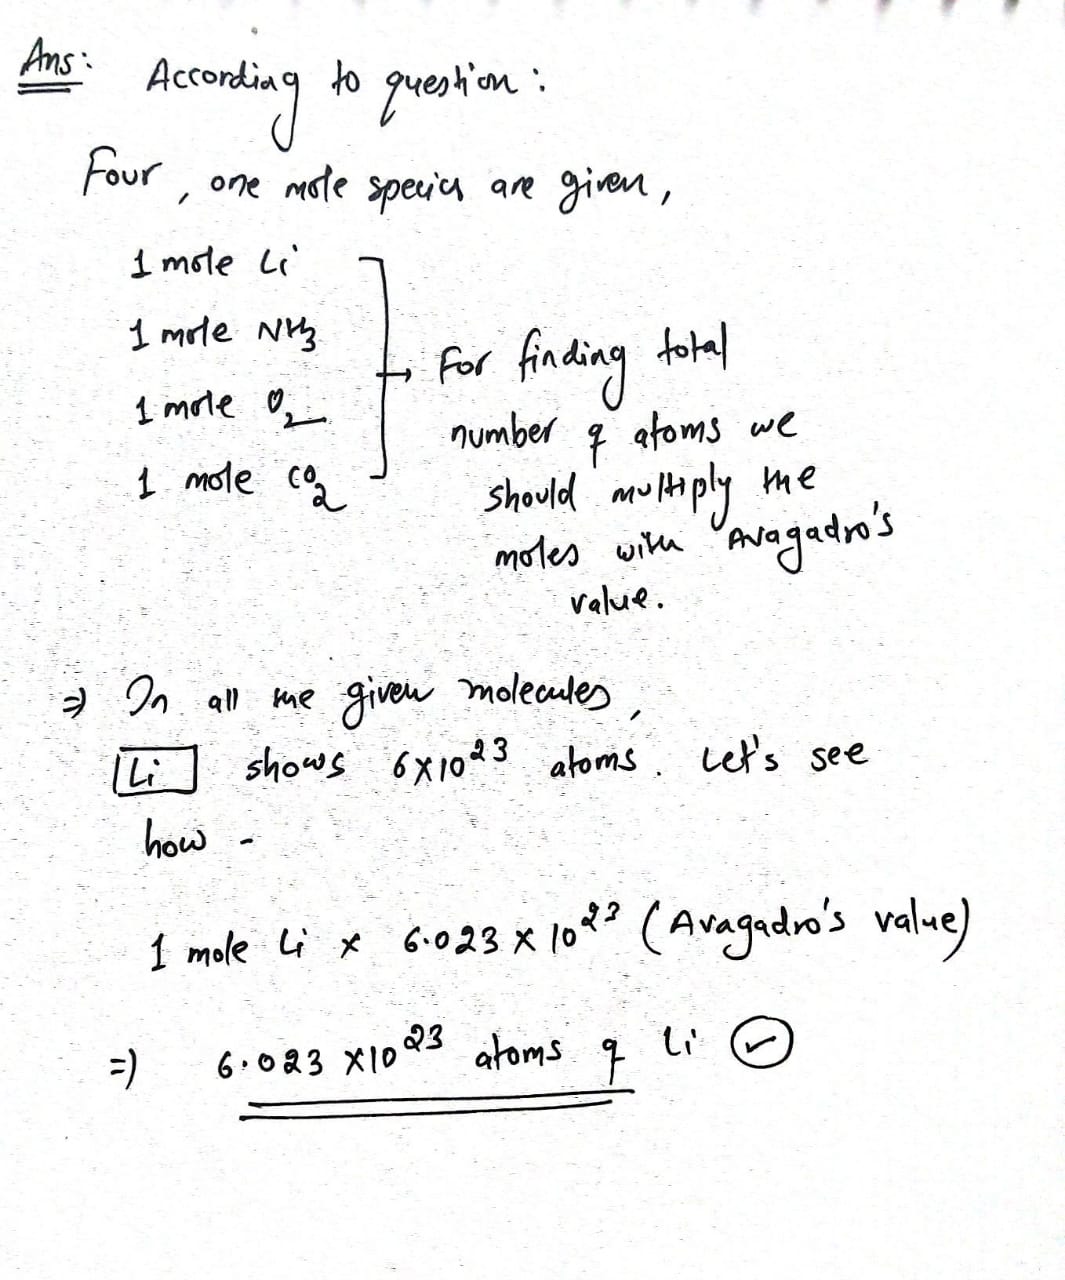 Ans: According to question:
Four, one mole species are given,
1 mole Li
1 mole NH3
1 mole O2
1 mole CO2
→ For finding total
number of atoms we
should multiply the
moles with Avagadro's
value.
⇒ In all the given molecules,
Li shows 6×10^23 atoms. Let's see
how -
1 mole Li × 6.023 × 10^23 (Avagadro's value)
⇒ 6.023 ×10^23 atoms of Li ✓